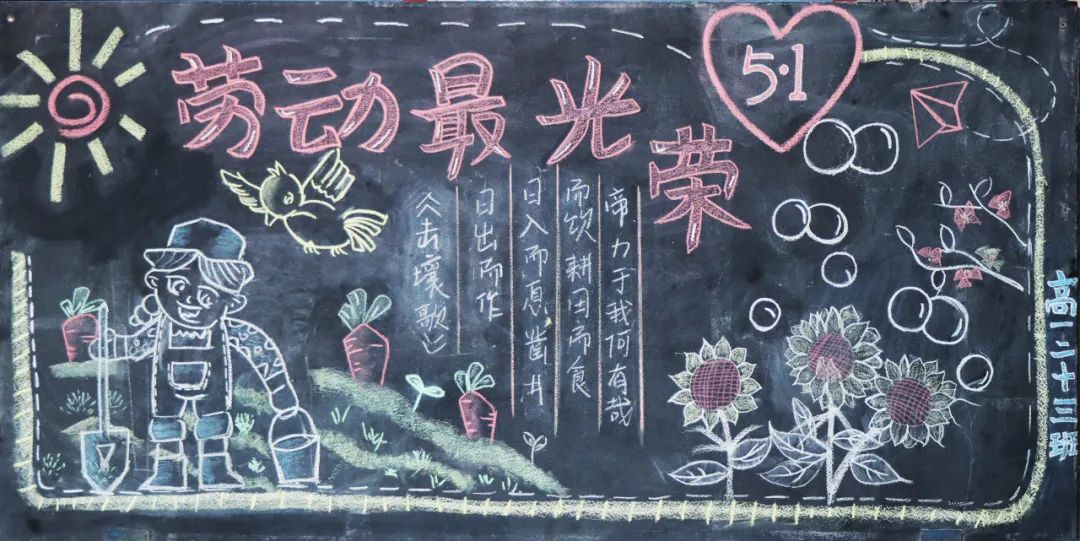 劳动最光荣
5·1
《击壤歌》
日出而作
日入而息凿井
而饮耕田而食
帝力于我何有哉
高一二十三班